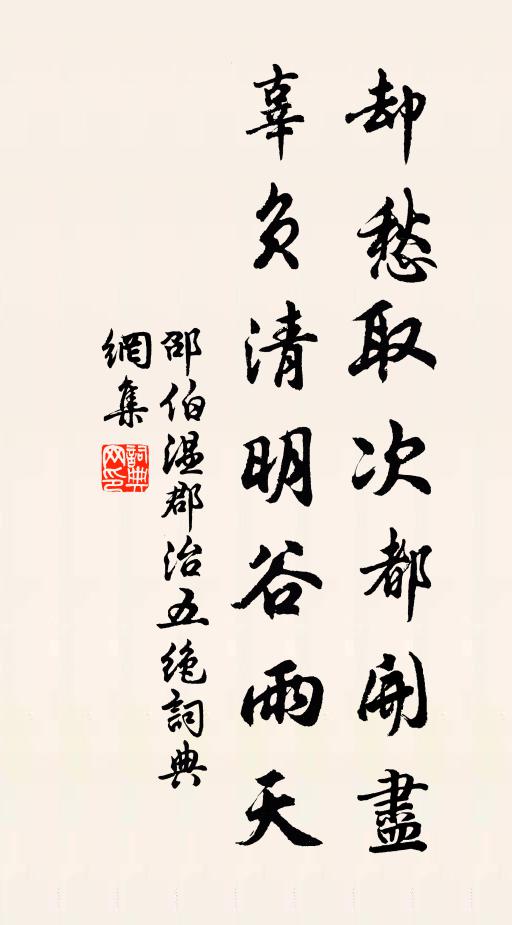 却愁取次都開盡
辜負清明谷雨天
邵伯温郡治五絶詞典
網集
詞典
网印